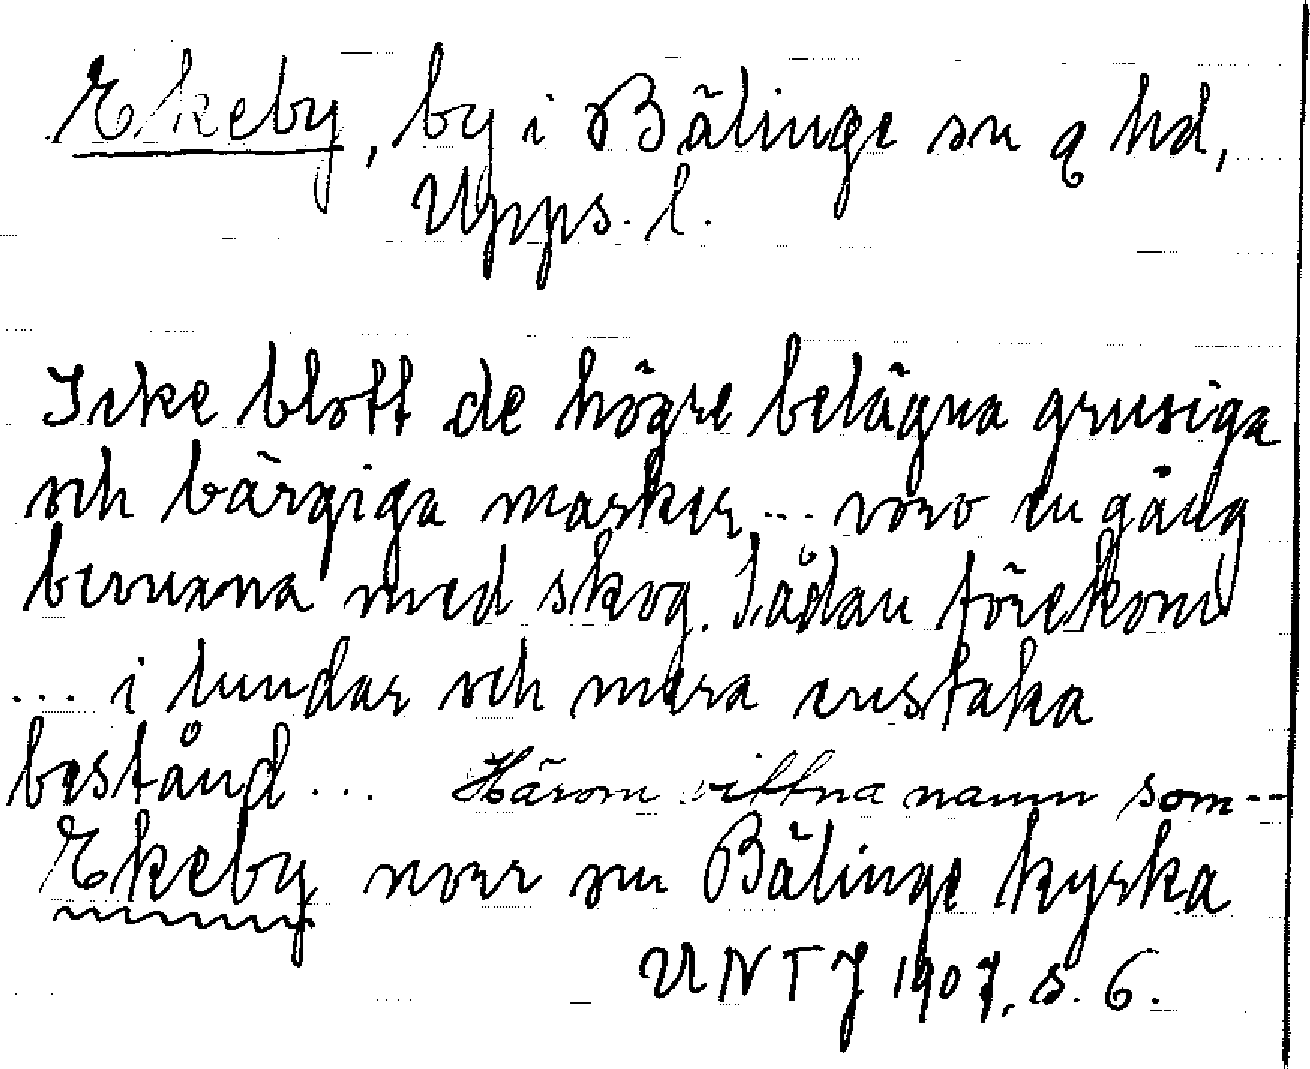 Ekeby, by i Bälinge sn o hd,
Upps. l.
Icke blott de högre belägna grusiga
och bärgiga marker ... voro en gång
bevuxna med skog. Sådan förekom
... i lundar och mera enstaka
bestånd ... Härom vittna namn som --
Ekeby norr om Bälinge kyrka
UNTJ 1907, s. 6.